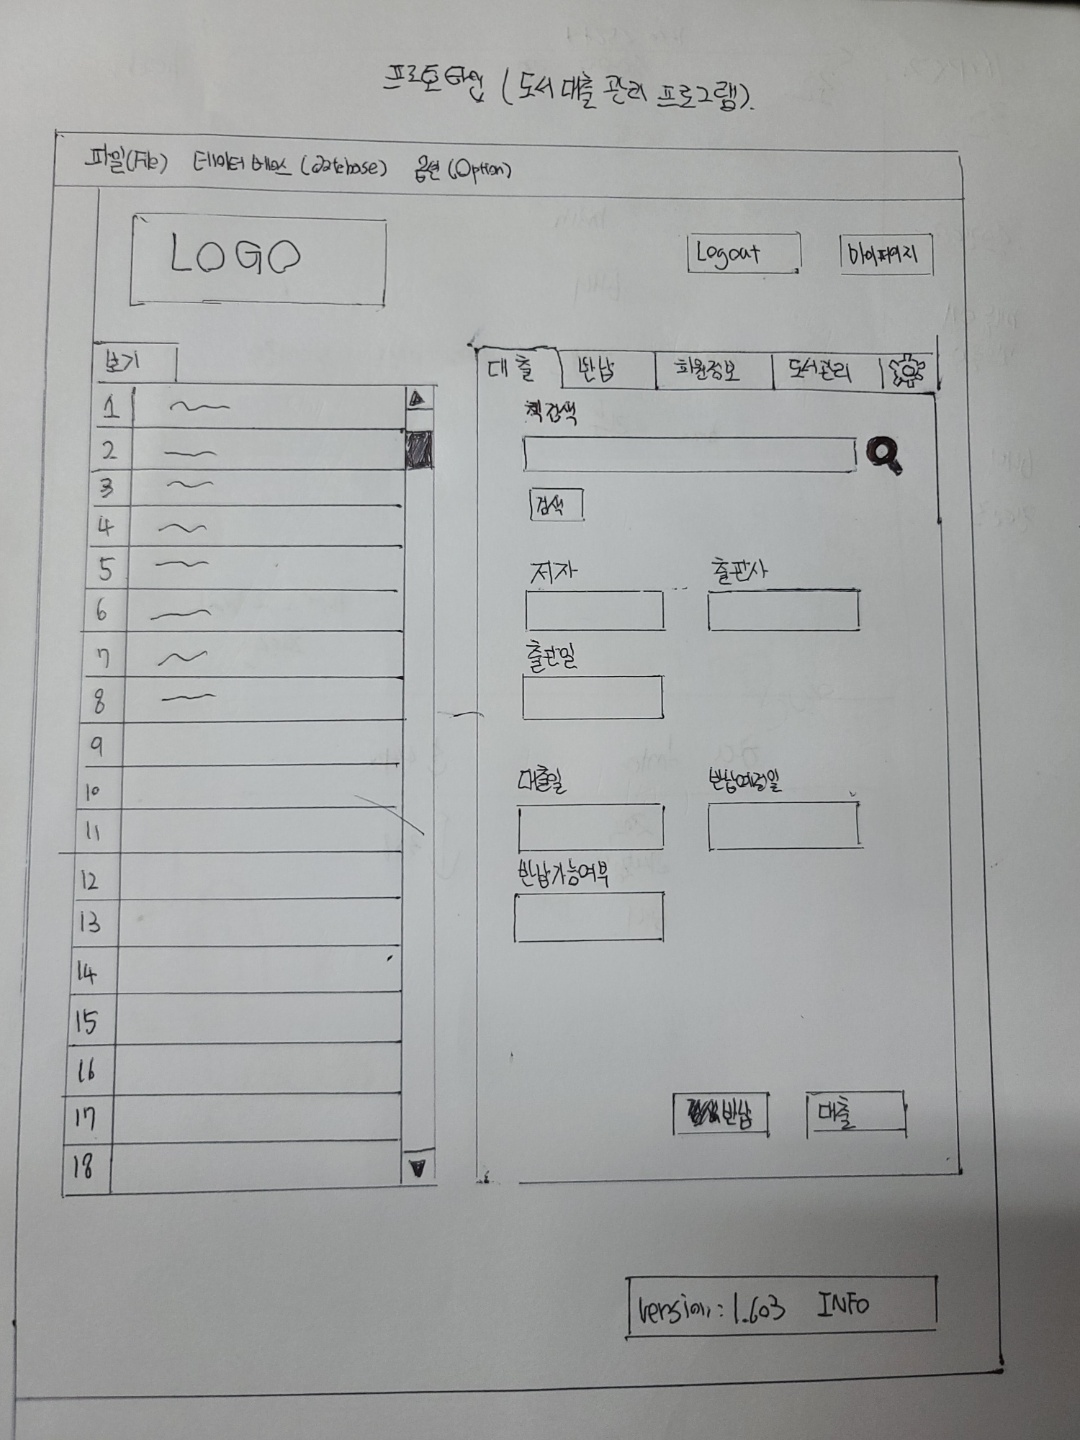 프로토타입 (도서 대출 관리 프로그램).
파일(File) 데이터 베이스 (database) 옵션 (Option)
LOGO
Logout 마이페이지
보기
대출 반납 회원정보 도서관리
1
2
3
4
5
6
7
8
9
10
11
12
13
14
15
16
17
18
책검색
검색
저자 출판사
출판일
대출일 반납예정일
반납가능여부
반납 대출
version: 1.603 INFO